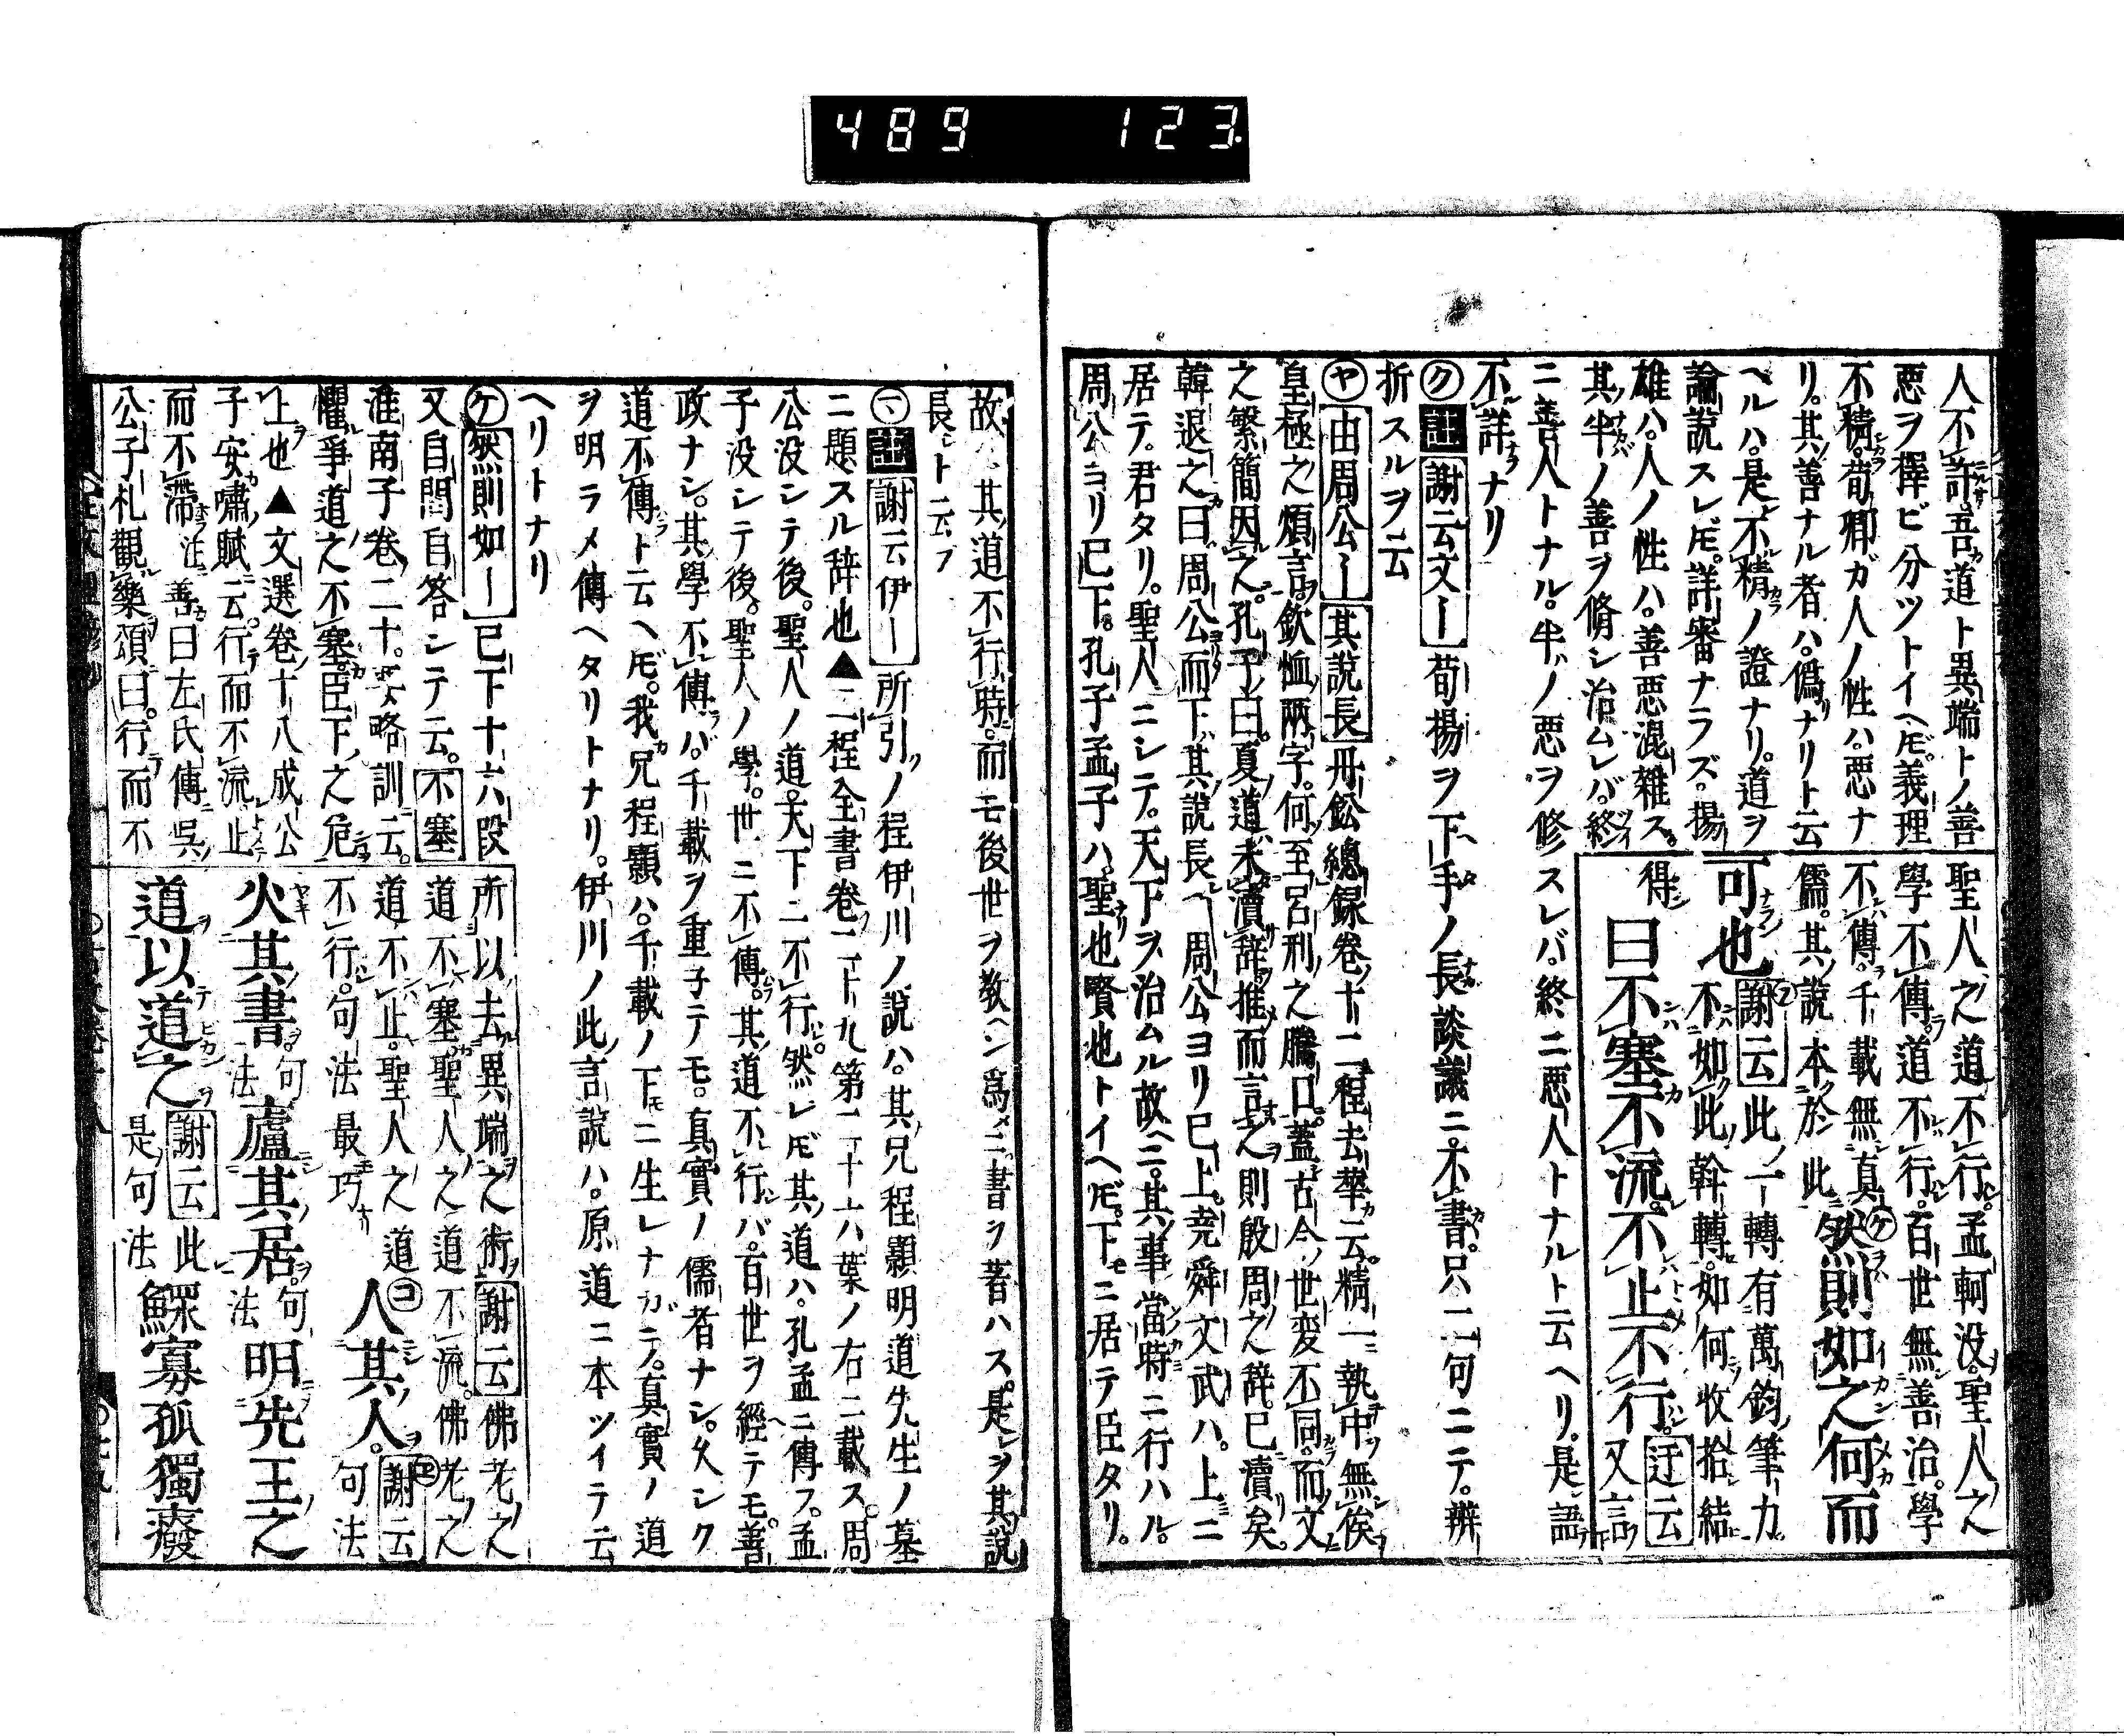 489 123
人不許吾道ト異端トノ善
惡ヲ擇ビ分ツトイヘ𪜈義理
不精荀卿ガ人ノ性ハ惡ナ
リ其善ナル者ハ僞ナリト云
ヘルハ是不精ノ證ナリ道ヲ
論說スレ𪜈詳審ナラズ揚
雄ハ人ノ性ハ善惡混雜ス
其半ノ善ヲ脩シ治ムレバ終
ニ善人トナル半ノ悪ヲ修スレバ終ニ悪人トナルト云ヘリ是語
不詳ナリ
聖人之道不行孟軻没聖人之
學不傳道不行百世無善治學
不傳千載無真
儒其說本於此
然則如之何而
可也
謝云此一轉有萬鈞筆力
不如此斡轉如何收拾結
得
曰不塞不流不止不行
迂云
又言
ク 註 謝云文ー 荀揚ヲ下手ノ長談議ニ不書只二句ニテ辨
折スルヲ云
ヤ 由周公ー 其說長 丹鉛總錄卷十二程去華云精一執中無俟
皇極之煩言欽恤兩字何至呂刑之騰口蓋古今世変不同而文
之繁簡因之孔子曰夏道未瀆辞推而言之則殷周之辞已瀆矣
韓退之曰周公而下其說長ヘ周公ヨリ已上尭舜文武ハ上ニ
居テ君タリ聖人ニシテ天下ヲ治ムル故ヘニ其事當時ニ行ハル
周公ヨリ已下孔子孟子ハ聖也賢也トイヘ𪜈下ニ居テ臣タリ
故其道不行時而モ後世ヲ教ヘン爲ニ書ヲ著ハス是ヲ其說
長ト云フ
註 謝云伊ー 所引ノ程伊川ノ說ハ其兄程顥明道先生ノ墓
ニ題スル辞也▲二程全書卷二十九第二十六葉ノ右ニ載ス周
公没シテ後聖人ノ道天下ニ不行然レ𪜈其道ハ孔孟ニ傳フ孟
子没シテ後聖人ノ學世ニ不傳其道不行バ百世ヲ經テモ善
政ナシ其學不傳バ千載ヲ重子テモ真實ノ儒者ナシ久シク
道不傳ト云ヘ𪜈我兄程顥ハ千載ノ下ニ生レナガラ真實ノ道
ヲ明ラメ傳ヘタリトナリ伊川ノ此言說ハ原道ニ本ツイテ云
ヘリトナリ
ケ 然則如ー 已下十六段
又自問自答シテ云 不塞
淮南子卷二十要略訓云
懼爭道之不塞臣下之危
上也▲文選卷十八成公
子安嘯賦云行而不流止
而不滯注善曰左氏傳呉
公子札觀樂頌曰行而不
所以去異端之術 謝云 佛老之
道不塞聖人之道不流佛老之
道不止聖人之道
不行句法最巧
人其人
謝云
句法
火其書
句法
廬其居
句法
明先王之
道以道之
謝云此
是句法
鰥寡孤獨癈